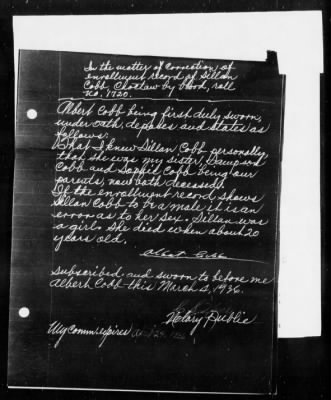 In the matter of Correction, of
enrollment record of Sillan
Cobb, Choctaw by blood, roll
no. 1720.
Albert Cobb being first duly sworn,
under oath, deposes and states as
follows:
That I knew Sillan Cobb personally,
that she was my sister, Sampson
Cobb and Sophie Cobb being our
parents, now both deceased.
If the enrollment record shows
Sillan Cobb to be a male it is an
error as to her sex. Sillan was
a girl. She died when about 20
years old.
Albert Cobb
Subscribed and sworn to before me
Albert Cobb this March 2, 1936.
Notary Public
My Comm. expires